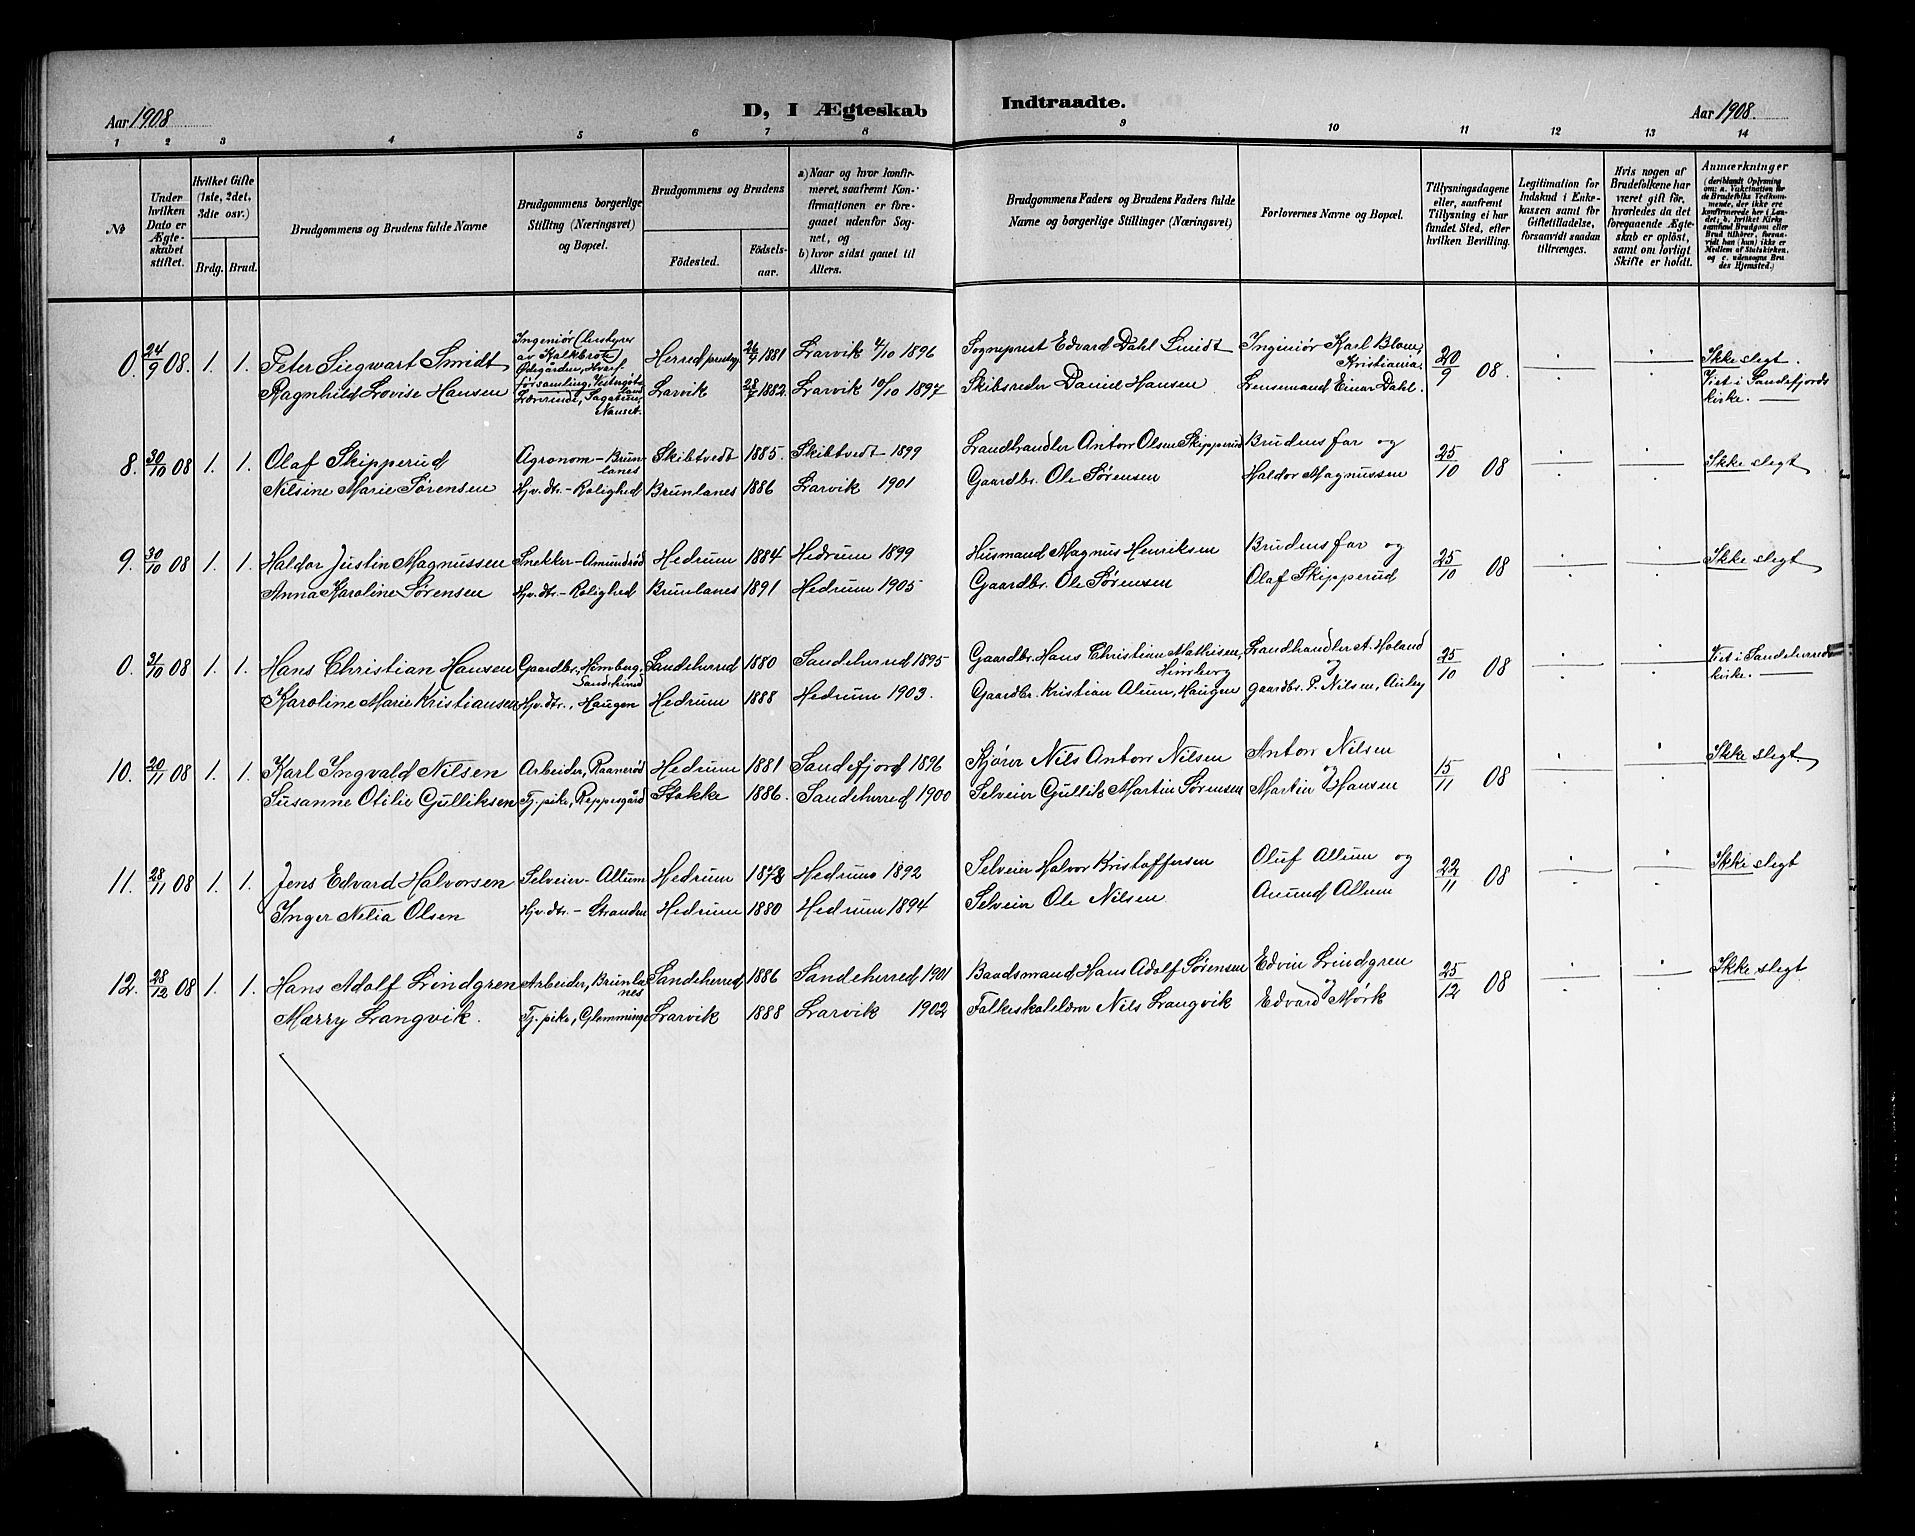 Aar 1908
D, I Ægteskab Indtraadte.
Aar 1908.
1 2 3 4 5 6 7 8 9 10 11 12 13 14
№
Under hvilken Dato er Ægteskabet stiftet.
Hvilket Gifte (1ste, 2det, 3die osv.)
Brdg. Brud.
Brudgommens og Brudens fulde Navne
Brudgommens borgerlige Stilling (Næringsvei) og Bopæl.
Brudgommens og Brudens
Födested.
Födselsaar.
a) Naar og hvor konfirmeret, saafremt Konfirmationen er foregaaet udenfor Sognet, og
b) hvor sidst gaaet til Alters.
Brudgommens Faders og Brudens Faders fulde Navne og borgerlige Stillinger (Næringsvei)
Forlovernes Navne og Bopæl.
Tillysningsdagene eller, saafremt Tillysning ei har fundet Sted, efter hvilken Bevilling.
Legitimation for Indskud i Enkekassen samt for Giftetilladelse, forsaavidt saadan tiltrænges.
Hvis nogen af Brudefolkene har været gift för, hvorledes da det foregaaende Ægteskab er oplöst, samt om lovligt Skifte er holdt.
Anmærkninger
(deriblandt Oplysning om: a. Vakcination for de Brudefolks Vedkommende, der ikke ere konfirmerede her i Landet, b. hvilket Kirkesamfund Brudgom eller Brud tilhörer, forsaavidt han (hun) ikke er Medlem af Statskirken, og c. udensogns Brudes Hjemsted.)
0. 24/9 08. 1. 1. Peter Siegwart Smidt Ingeniör (bestyrer av Kalkbrot) Ödegården, Hvarf församling, Vestergötland Herred prestgj. 26/7 1881 Larvik 4/10 1896 Sogneprest Edvard Dahl Smidt Ingeniör Karl Blom, Kristiania. 20/9 08. Ikke slegt.
Ragnhild Lovise Hansen Lærerinde, Nanset. Larvik 28/7 1882. Larvik 10/10 1897 Skibsreder Daniel Hansen Lensmand Einar Dahl. Viet i Sandefjords kirke.
8. 30/10 08 1. 1. Olaf Skipperud Agronom – Brunlanes Skibtvedt 1885. Skibtvedt 1899 Landhandler Anton Olsen Skipperud Brudens far og 25/10 08 Ikke slegt
Nilsine Marie Sørensen Hjv. dtr. – Rolighed Brunlanes 1886 Larvik 1901 Gaardbr. Ole Sørensen Haldor Magnussen
9. 30/10 08 1. 1. Haldor Justin Magnussen Snekker – Amundrød Hedrum 1884 Hedrum 1899 Husmand Magnus Henriksen Brudens far og 25/10 08 Ikke slegt
Anna Karoline Sørensen Hjv. dtr. – Rolighed Brunlanes 1891 Hedrum 1905 Gaardbr. Ole Sørensen Olaf Skipperud
0. 31/10 08 1. 1. Hans Christian Hansen Gaardbr., Himberg, Sandeherred Sandeherred 1880 Sandeherred 1895 Gaardbr. Hans Christian Mathisen, Himberg Landhandler A. Holand og 25/10 08 Viet i Sandeherred kirke.
Karoline Marie Kristiansen Hjv. dtr., Haugen Hedrum 1888 Hedrum 1903. Gaardbr. Kristian Alum, Haugen gaardbr. P. Nilsen, Auby
10. 20/11 08 1. 1. Karl Ingvald Nilsen Arbeider, Raanerød Hedrum 1881 Sandefjord 1896 Kjører Nils Anton Nilsen Anton Nilsen og 15/11 08 Ikke slegt
Susanne Otilie Gulliksen Tj. pike, Reppesgård Stokke 1886. Sandeherred 1900 Selveier Gullik Martin Sørensen Martin Hansen
11. 28/11 08 1. 1. Jens Edvard Halvorsen Selveier – Allum Hedrum 1878 Hedrum 1892 Selveier Halvor Kristoffersen Oluf Allum og 22/11 08 Ikke slegt
Inger Nelia Olsen Hjv. dtr. – Stranden Hedrum 1880 Hedrum 1894 Selveier Ole Nilsen Amund Allum
12. 28/12 08 1. 1. Hans Adolf Lindgren Arbeider, Brunlanes Sandeherred 1886 Sandeherred 1901 Baadsmand Hans Adolf Sørensen Edvin Lindgren og 25/12 08 Ikke slegt
Mærry Langvik. Tj. pike, Glomminge Larvik 1888 Larvik 1902 Folkeskolelærer Nils Langvik Edvard Mørk